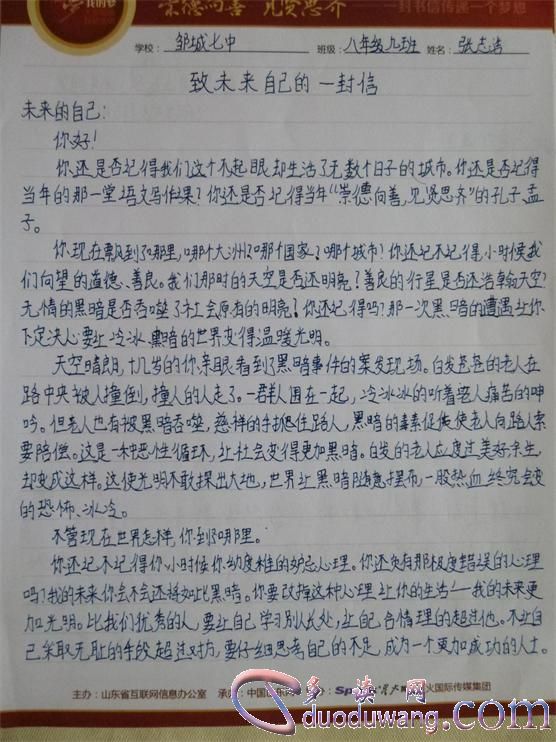 我的梦 崇德向善 见贤思齐 一封书信传递一个梦想
学校：邹城七中 班级：八年级九班 姓名：张志浩
致未来自己的一封信
未来的自己：
你好！
你还是否记得我们这个不起眼却生活了无数个日子的城市。你还是否记得
当年的那一堂语文写作课？你还是否记得当年“崇德向善，见贤思齐”的孔子、孟
子。
你现在飘到了哪里，哪个大洲？哪个国家？哪个城市？你还记不记得，小时候我
们向望的道德、善良。我们那时的天空是否还明亮？善良的行星是否还浩翰天空？
无情的黑暗是否吞噬了社会原有的明亮？你还记得吗？那一次黑暗的遭遇让你
下定决心要让冷冰、黑暗的世界变得温暖光明。
天空晴朗，十几岁的你亲眼看到了黑暗事件的案发现场。白发苍苍的老人在
路中央被人撞倒，撞人的人走了。一群人围在一起，冷冰冰的听着老人痛苦的呻
吟。但老人也有被黑暗吞噬，慈祥的手抓住路人，黑暗的毒素促使老人向路人索
要陪偿。这是一种恶性循环，让社会变得更加黑暗。白发的老人应度过美好余生，
却变成这样。这使光明不敢探出大地，世界让黑暗随意摆布，一股热血终究会变
的恐怖、冰冷。
不管现在世界怎样，你到了哪里。
你还记不记得你小时候你幼度稚的妒忌心理。你还负有那极度错误的心理
吗？我的未来你会不会还将如此黑暗。你要改掉这种心理让你的生活——我的未来更
加光明。比我们优秀的人，要让自己学习别人长处，让自己合情理的超过他。不让自
己采取无耻的手段超过对方，要仔细思考自己的不足，成为一个更加成功的人士。
主办：山东省互联网信息办公室 承办：中国山东网 火国际传媒集团
多读网
duoduwang.com